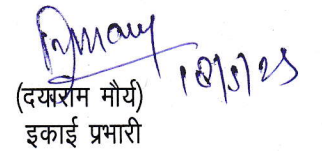 18/5/25
(दयाराम मौर्य)
इकाई प्रभारी